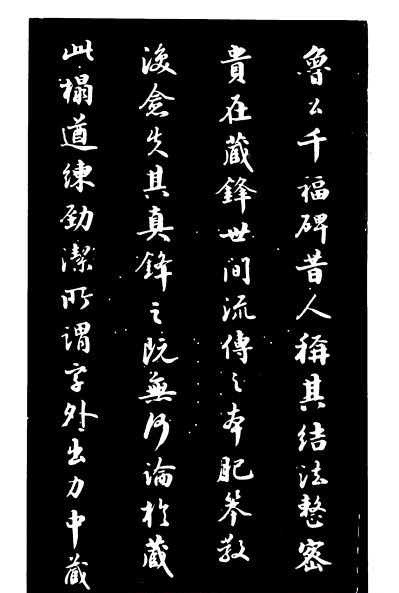 魯公千福碑昔人稱其結法整密
貴在藏鋒世間流傳之本肥笨散
漫愈失其真鋒之既無何論於藏
此榻遒練勁潔所謂字外出力中藏